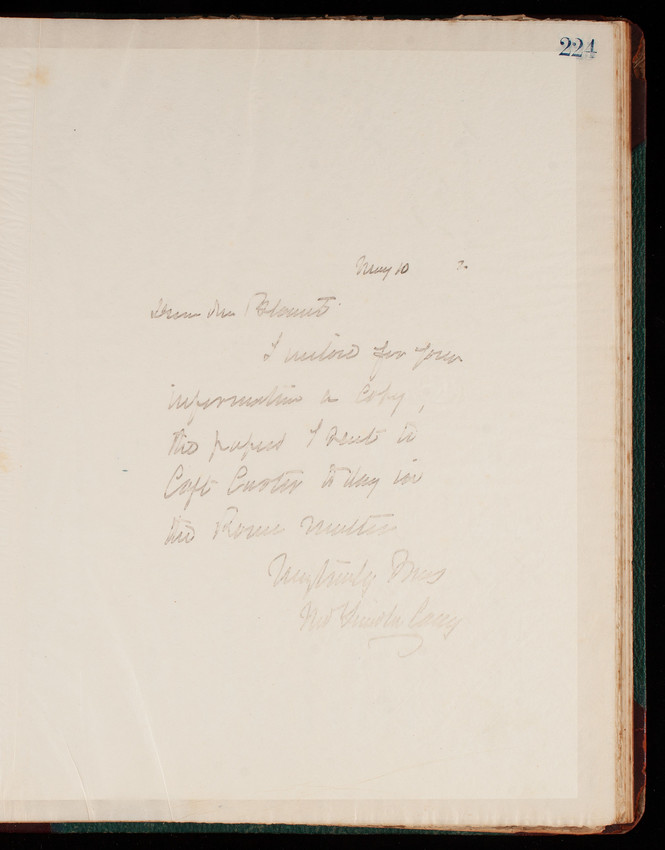 224
May 10
Dear Mr Blount
I enclose for your
information a copy
the paper I sent to
Capt Carter to day in
the Rowe matter
Very truly Yours
Thos Lincoln Casey